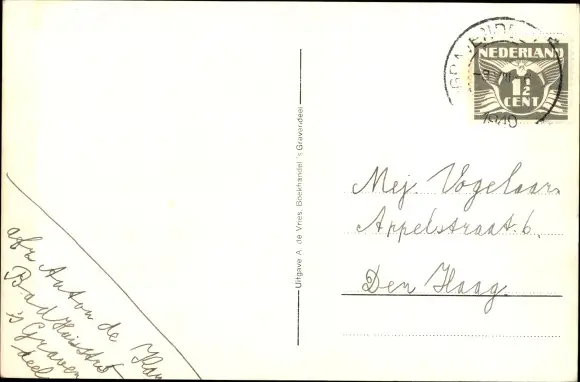 NEDERLAND
1½
CENT
1940
Uitgave A. de Vries, Boekhandel 's Gravendeel
Mej. Vogelaar
Appelstraat 6.
Den Haag.
afz Anton de
Bad
's Graven
deel